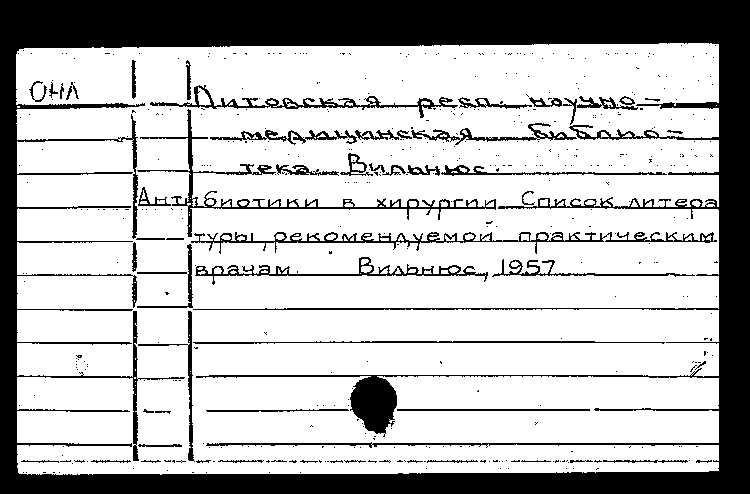 ОНЛ
Литовская респ. научно-
медицинская библио-
тека. Вильнюс.
Антибиотики в хирургии Список литера
туры, рекомендуемой практическим
врачам. Вильнюс, 1957